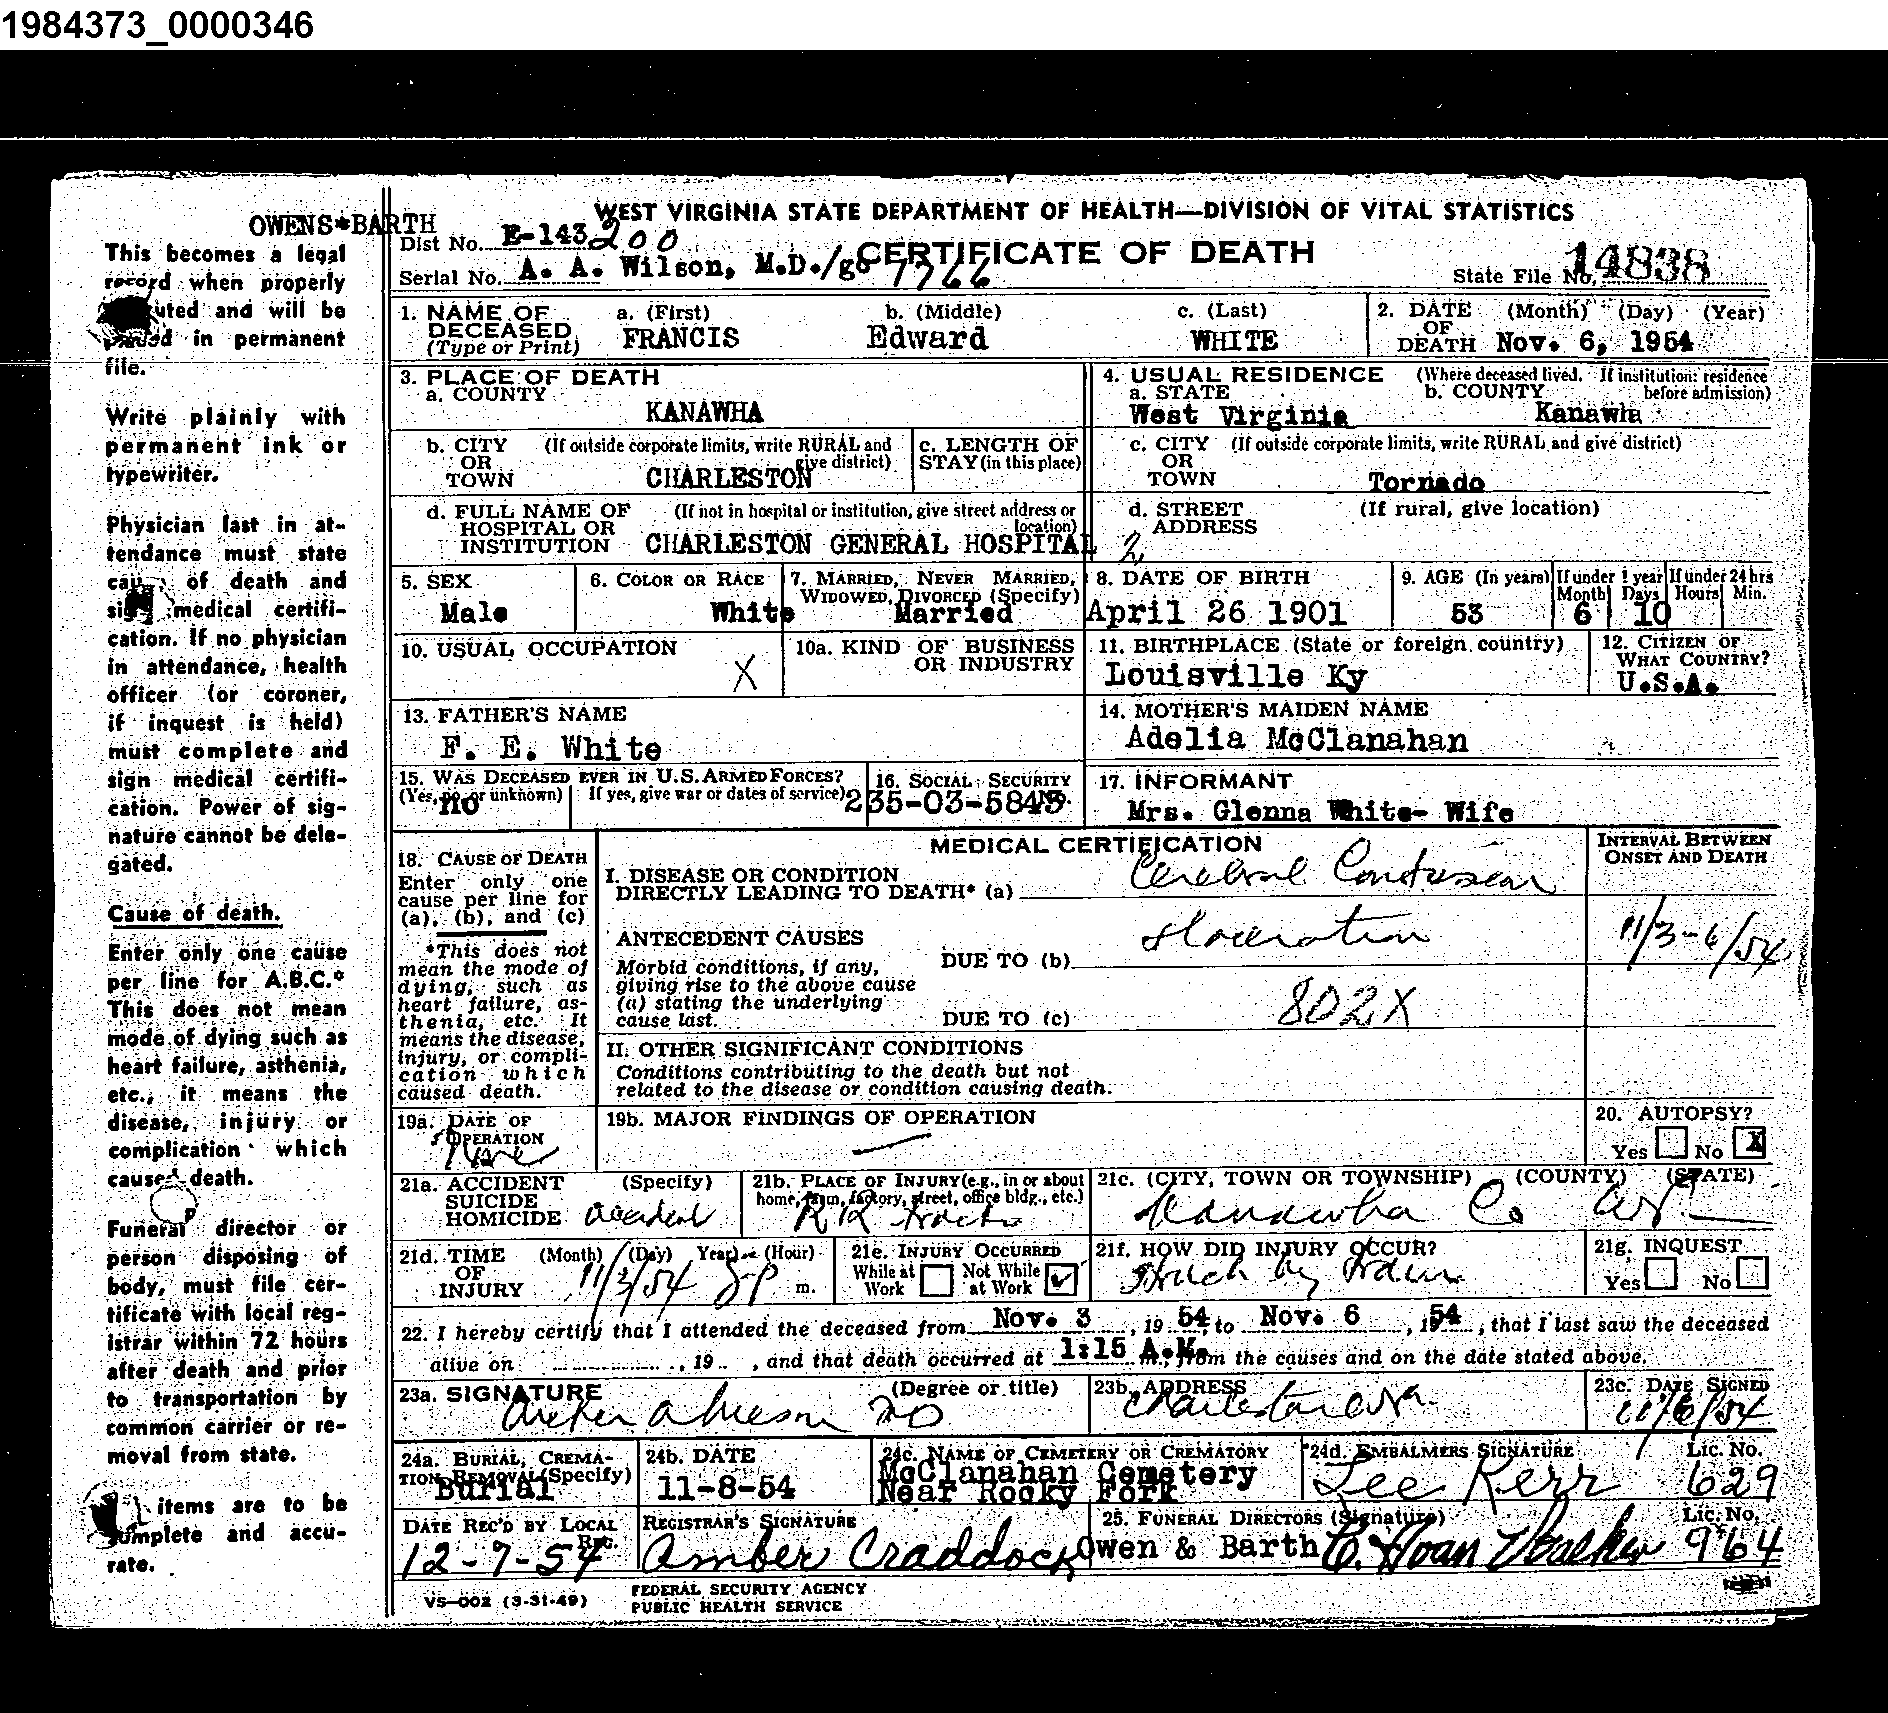 1984373_0000346
OWENS*BARTH
This becomes a legal
record when properly
uted and will be
in permanent
file.
Write plainly with
permanent ink or
typewriter.
Physician last in at-
tendance must state
cau of death and
sig medical certifi-
cation. If no physician
in attendance, health
officer (or coroner,
if inquest is held)
must complete and
sign medical certifi-
cation. Power of sig-
nature cannot be dele-
gated.
Cause of death.
Enter only one cause
per line for A.B.C.*
This does not mean
mode of dying such as
heart failure, asthenia,
etc., it means the
disease, injury or
complication which
cause death.
Funeral director or
person disposing of
body, must file cer-
tificate with local reg-
istrar within 72 hours
after death and prior
to transportation by
common carrier or re-
moval from state.
items are to be
complete and accu-
rate.
WEST VIRGINIA STATE DEPARTMENT OF HEALTH—DIVISION OF VITAL STATISTICS
Dist No. E-143 200
CERTIFICATE OF DEATH
Serial No. A. A. Wilson, M.D./go 7766
State File No. 14838
1. NAME OF DECEASED (Type or Print) a. (First) FRANCIS b. (Middle) Edward c. (Last) WHITE
2. DATE OF DEATH (Month) (Day) (Year) Nov. 6, 1954
3. PLACE OF DEATH
a. COUNTY KANAWHA
4. USUAL RESIDENCE (Where deceased lived. If institution: residence before admission)
a. STATE West Virginia b. COUNTY Kanawha
b. CITY OR TOWN (If outside corporate limits, write RURAL and give district) CHARLESTON
c. LENGTH OF STAY (in this place)
c. CITY OR TOWN (If outside corporate limits, write RURAL and give district) Tornado
d. FULL NAME OF HOSPITAL OR INSTITUTION (If not in hospital or institution, give street address or location) CHARLESTON GENERAL HOSPITAL
d. STREET ADDRESS (If rural, give location) 2
5. SEX Male
6. COLOR OR RACE White
7. MARRIED, NEVER MARRIED, WIDOWED, DIVORCED (Specify) Married
8. DATE OF BIRTH April 26 1901
9. AGE (In years) 53 If under 1 year Month 6 Days 10 If under 24 hrs Hours Min.
10. USUAL OCCUPATION X
10a. KIND OF BUSINESS OR INDUSTRY
11. BIRTHPLACE (State or foreign country) Louisville Ky
12. CITIZEN OF WHAT COUNTRY? U.S.A.
13. FATHER'S NAME F. E. White
14. MOTHER'S MAIDEN NAME Adelia McClanahan
15. WAS DECEASED EVER IN U.S. ARMED FORCES? (Yes, no or unknown) no If yes, give war or dates of service)
16. SOCIAL SECURITY No. 235-03-5843
17. INFORMANT Mrs. Glenna White- Wife
MEDICAL CERTIFICATION
INTERVAL BETWEEN ONSET AND DEATH
18. CAUSE OF DEATH
Enter only one cause per line for (a), (b), and (c)
*This does not mean the mode of dying, such as heart failure, asthenia, etc. It means the disease, injury, or complication which caused death.
I. DISEASE OR CONDITION DIRECTLY LEADING TO DEATH* (a) Cerebral Contusion
ANTECEDENT CAUSES
Morbid conditions, if any, giving rise to the above cause (a) stating the underlying cause last.
DUE TO (b) & laceration 11/3-6/54
DUE TO (c) 802X
II. OTHER SIGNIFICANT CONDITIONS
Conditions contributing to the death but not related to the disease or condition causing death.
19a. DATE OF OPERATION None
19b. MAJOR FINDINGS OF OPERATION —
20. AUTOPSY? Yes No X
21a. ACCIDENT SUICIDE HOMICIDE (Specify) accident
21b. PLACE OF INJURY (e.g., in or about home, farm, factory, street, office bldg., etc.) RR tracks
21c. (CITY, TOWN OR TOWNSHIP) (COUNTY) (STATE) Kanawha Co
21d. TIME OF INJURY (Month) (Day) Year) (Hour) 11/3/54 8 P m.
21e. INJURY OCCURRED While at Work Not While at Work ✓
21f. HOW DID INJURY OCCUR? Struck by train
21g. INQUEST Yes No
22. I hereby certify that I attended the deceased from Nov. 3, 19 54, to Nov. 6, 1954, that I last saw the deceased
alive on , 19 , and that death occurred at 1:15 A.M. m., from the causes and on the date stated above.
23a. SIGNATURE (Degree or title) MD
23b. ADDRESS Charleston W Va.
23c. DATE SIGNED 11/6/54
24a. BURIAL, CREMATION REMOVAL (Specify) Burial
24b. DATE 11-8-54
24c. NAME OF CEMETERY OR CREMATORY McClanahan Cemetery Near Rocky Fork
24d. EMBALMERS SIGNATURE Lee Kerr Lic. No. 629
DATE REC'D BY LOCAL REG. 12-7-54
REGISTRAR'S SIGNATURE Amber Craddock
25. FUNERAL DIRECTORS (Signature) Owen & Barth Lic. No. 964
VS-002 (3-31-49)
FEDERAL SECURITY AGENCY
PUBLIC HEALTH SERVICE